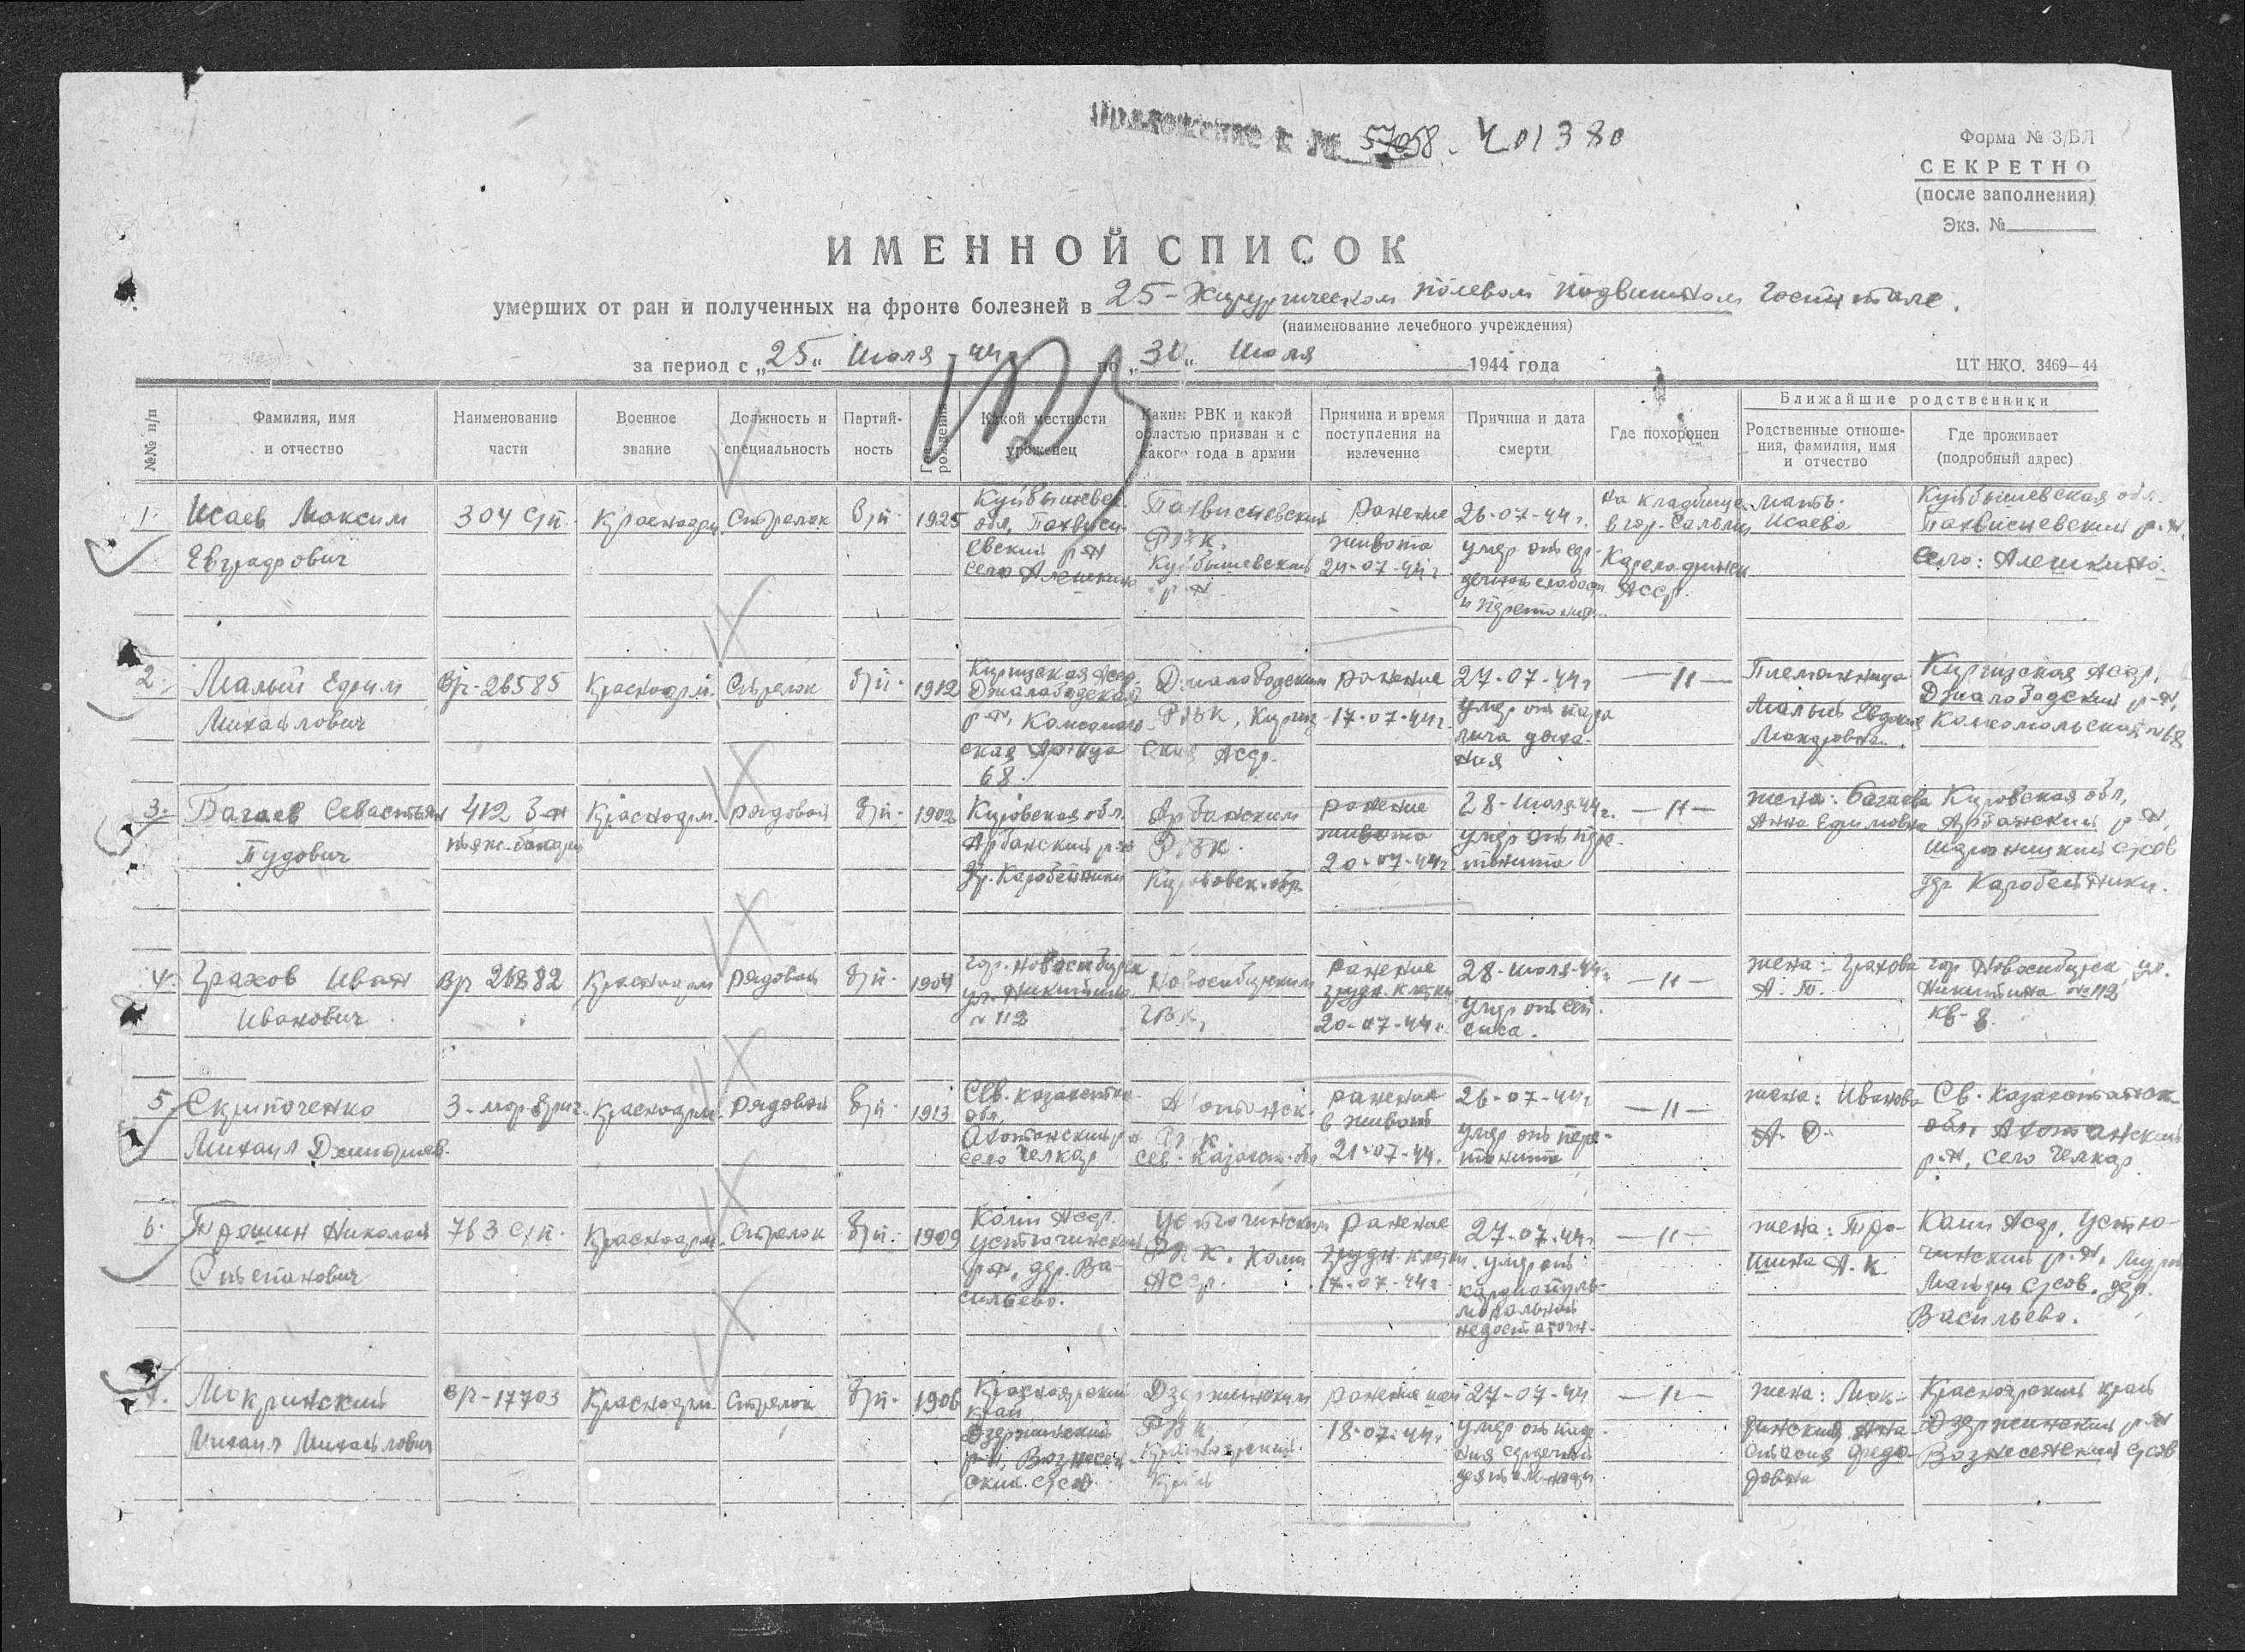 Приложение к № 57058. 401380
Форма № 3/БЛ
СЕКРЕТНО
(после заполнения)
Экз. №
ИМЕННОЙ СПИСОК
умерших от ран и полученных на фронте болезней в 25-Хирургическом полевом подвижном госпитале.
(наименование лечебного учреждения)
за период с „25“ июля 44 по „31“ июля 1944 года
ЦТ НКО. 3469—44
№№ п/п
Фамилия, имя и отчество
Наименование части
Военное звание
Должность и специальность
Партийность
Год рождения
Какой местности уроженец
Каким РВК и какой областью призван и с какого года в армии
Причина и время поступления на излечение
Причина и дата смерти
Где похоронен
Ближайшие родственники
Родственные отношения, фамилия, имя и отчество
Где проживает (подробный адрес)
1.
Исаев Максим
Евграфович
304 с/п.
Красноарм
Стрелок
б/п.
1925
Куйбышевс.
обл, Похвисн-
евский р-н
село Алешкино
Похвисневский
РВК.
Куйбышевский
р-н.
Ранение
живота
24-07-44г
26-07-44г.
умер от сер-
дечной слабост
и перетонит.
на кладбище
в гор. Сальми
Карелофинск
АССР.
мать.
Исаева
Куйбышевская обл.
Похвисневский р-н.
Село: Алешкино.
2.
Малый Ефим
Михайлович
в/ч-26585
Красноарм.
Стрелок
б/п.
1912
Киргизская Асср.
Джалабадский
р-н, Комсомоль
ская
68.
Джалабадским
РВК, Кирги
ская Асср.
ранение
17-07-44г.
27-07-44г
умер от пара
лича дыха-
ния
—〃—
Племянница
Малый Евдокия
Макаровна.
Киргизская Асср,
Джалабадский р-н,
Комсомольская №68
3.
Багаев Севастьян
Тудович
412
Красноарм.
рядовой
б/п.
1902
Кировская обл.
Арбанский р-н
др. Каробейники
Арбанским
РВК.
Кировск. обл.
ранение
живота
20-07-44г
28-июля-44г.
умер от пере-
тонита
—〃—
жена: Багаева
Анна Ефимовна
Кировская обл,
Арбанский р-н,
Шараницкий с/сов
др. Каробейники.
4.
Грахов Иван
Иванович
в/ч 26882
Красноарм
рядовой
б/п.
1904
гор. Новосибирск
ул. Никитина
№ 112
Новосибирским
ГВК,
Ранение
грудн. клетки
20-07-44г.
28-июля-44г
умер от сеп
сиса.
—〃—
жена: Грахова
А. Т.
гор Новосибирск, ул.
Никитина №112
кв-8.
5.
Скрипоченко
Михаил Дмитриев.
3-мор. бриг.
Красноарм.
рядовой
б/п.
1913
Сев. Казахстан-
обл.
Айртавский р-н
село Челкар
Сев. Казахст. обл
ранение
в живот
21-07-44.
26-07-44г
умер от пере-
тонита
—〃—
жена: Иванова
А. Д.
Св. Казахстанск
обл,
р-н, село Челкар
6.
Трошин Николай
Степанович
763 с/п.
Красноарм.
Стрелок
б/п.
1909
Коми Асср.
Устючинский
р-н, дер. Ва-
сильево.
Устючинским
РВК. Коми
АССР.
ранение
грудн. клетки
17-07-44г
27-07-44г
умер от
кардиопуль-
моральной
недостаточн.
—〃—
жена: Тро-
шина А. К
Коми Асср, Устю-
чинский р-н,
с/сов. дер.
Васильево.
7.
Мокринский
Михаил Михайлович
в/ч-17703
Красноарм
Стрелок
б/п.
1906
Красноярский
край
Дзержинский
р-н, Вознесен-
ский с/сов.
Дзержинским
РВК
Красноярский
край
ранение
18-07-44г
27-07-44
умер от паде
ния сердечной
деятельности
—〃—
жена: Мок-
ринский Ана-
стасия Федо-
ровна
Красноярский край
Дзержинский р-н
Вознесенский с/сов